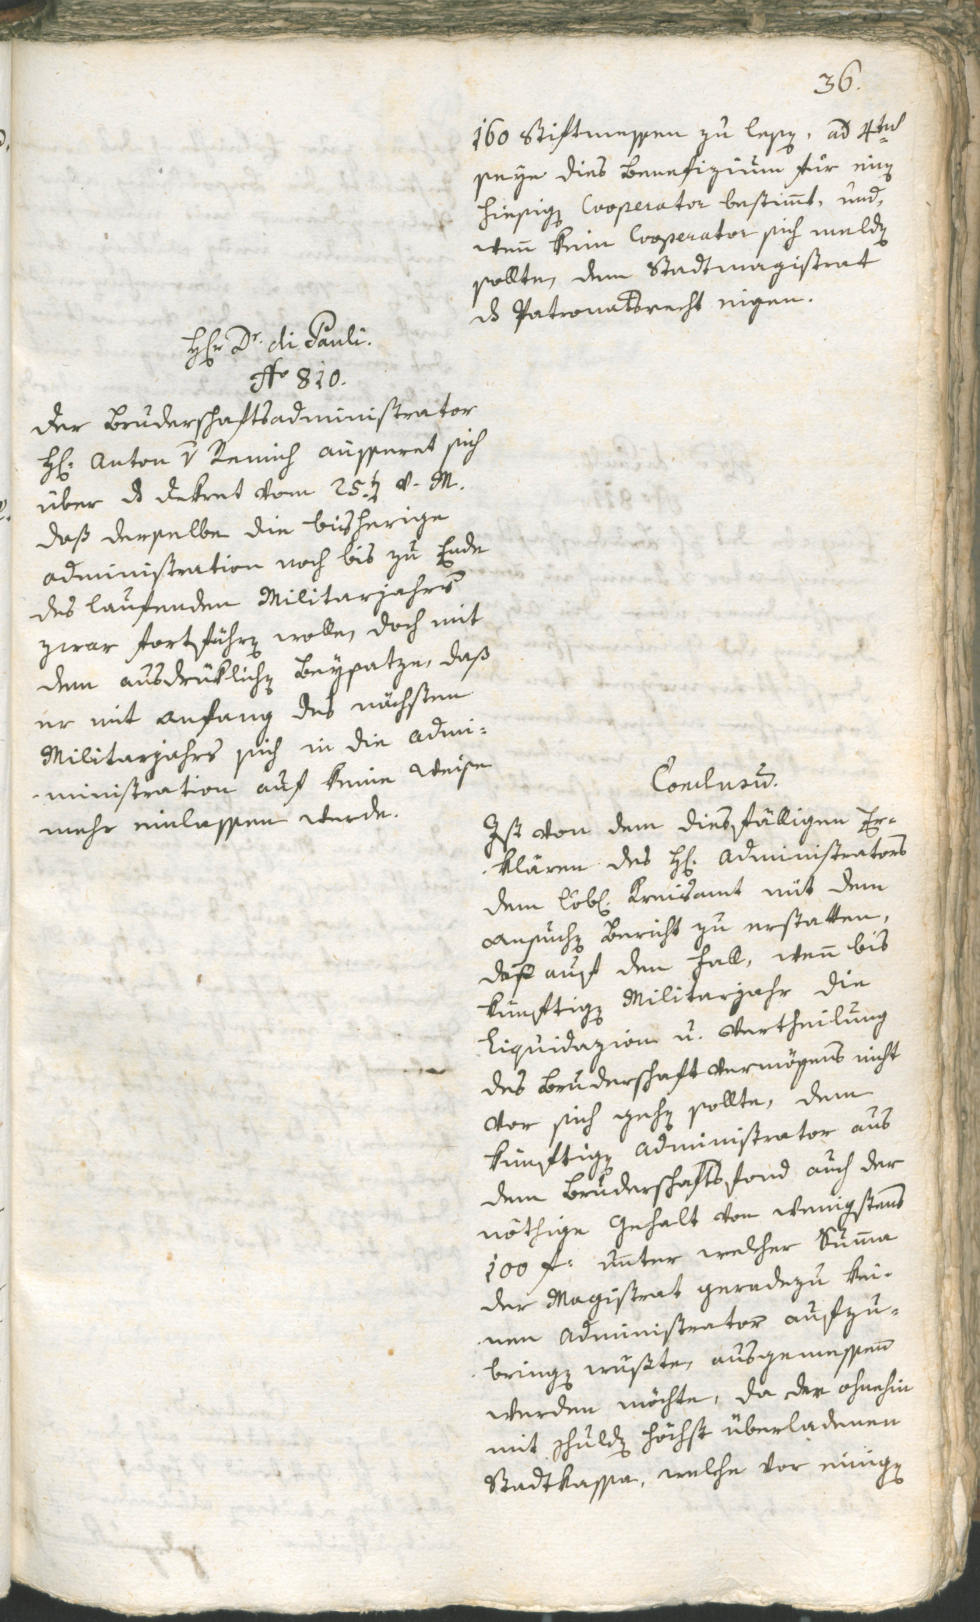 36.
160 Stiftmessen zu lesen, ad 4tus
seye dies Benefizium für einen
hiesigen Cooperator bestimt, und,
wen̄ kein Cooperator sich melden
sollte, dem Stadtmagistrat
ds Patronatsrecht eigen.
Hr Dr. di Pauli.
No 810.
Der Bruderschaftsadministrator
H: Anton v Remich äusseret sich
über ds Dekret vom 25. v. M.
daß derselbe die bisherige
administration noch bis zu Ende
des laufenden Militarjahrs
zwar fortführen wolle, doch mit
dem ausdrüklichen Beysatze, daß
er mit Anfang des nächsten
Militarjahrs sich in die admi-
ministration auf keine Weise
mehr einlassen werde.
Conclusū.
Ist von dem diesfälligen Er-
klären des H: Administrators
dem löbl: Kreisamt mit dem
Ansuchen Bericht zu erstatten,
daß auf den Fall, wen̄ bis
künftigen Militarjahr die
Liquidazion u. Vertheilung
des Bruderschaftvermögens nicht
vor sich gehen sollte, dem
künftigen Administrator aus
dem Bruderschaftsfond auch der
nöthige Gehalt von wenigstens
100 f: unter welcher Sum̄a
der Magistrat geradezu kei-
nen Administrator aufzu-
bringen wüßte, ausgemessen
werden möchte, da der ohnehin
mit Schulden höchst überladenen
Stadtkassa, welche vor einigen